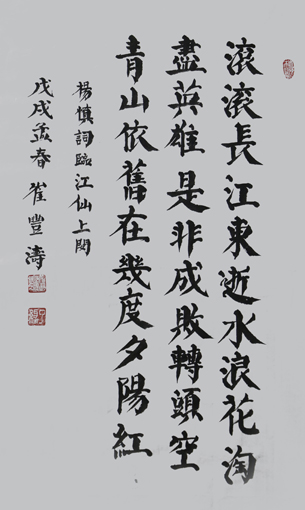 滾滾長江東逝水浪花淘
盡英雄是非成敗轉頭空
青山依舊在幾度夕陽紅
楊慎詞臨江仙上闋
戊戌孟春崔豐濤